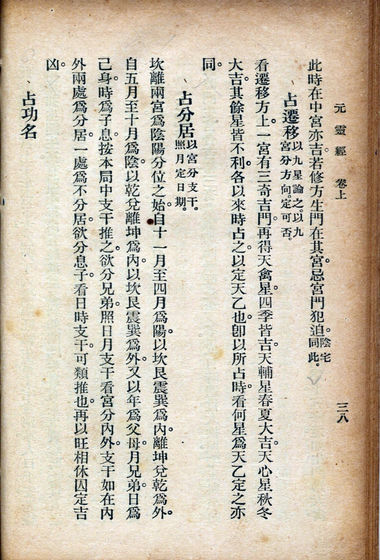 元靈經 卷上 三八
此時在中宮亦吉。若修方生門在其宮。忌宮門犯迫。陰宅同此。
占遷移 以九星論之。以九宮分方向。定可否。
看遷移方上。一宮有三奇吉門。再得天禽星。四季皆吉。天輔星春夏大吉。天心星秋冬
大吉。其餘星皆不利。各以來時占之。以定天乙也。卽以所占時。看何星爲天乙定之。亦
同。
占分居 以宮分支干。照月定日期。
坎離兩宮。爲陰陽分位之始。自十一月至四月爲陽。以坎艮震巽爲內。離坤兌乾爲外。
自五月至十月爲陰。以乾兌離坤爲內。以坎艮震巽爲外。又以年爲父母。月兄弟。日爲
己身。時爲子息。按本局中支干推之。欲分兄弟。照日月支干。看宮分內外。支干如在內
外兩處爲分居。一處爲不分居。欲分息子。看日時支干。可類推也。再以旺相休囚定吉
凶。
占功名